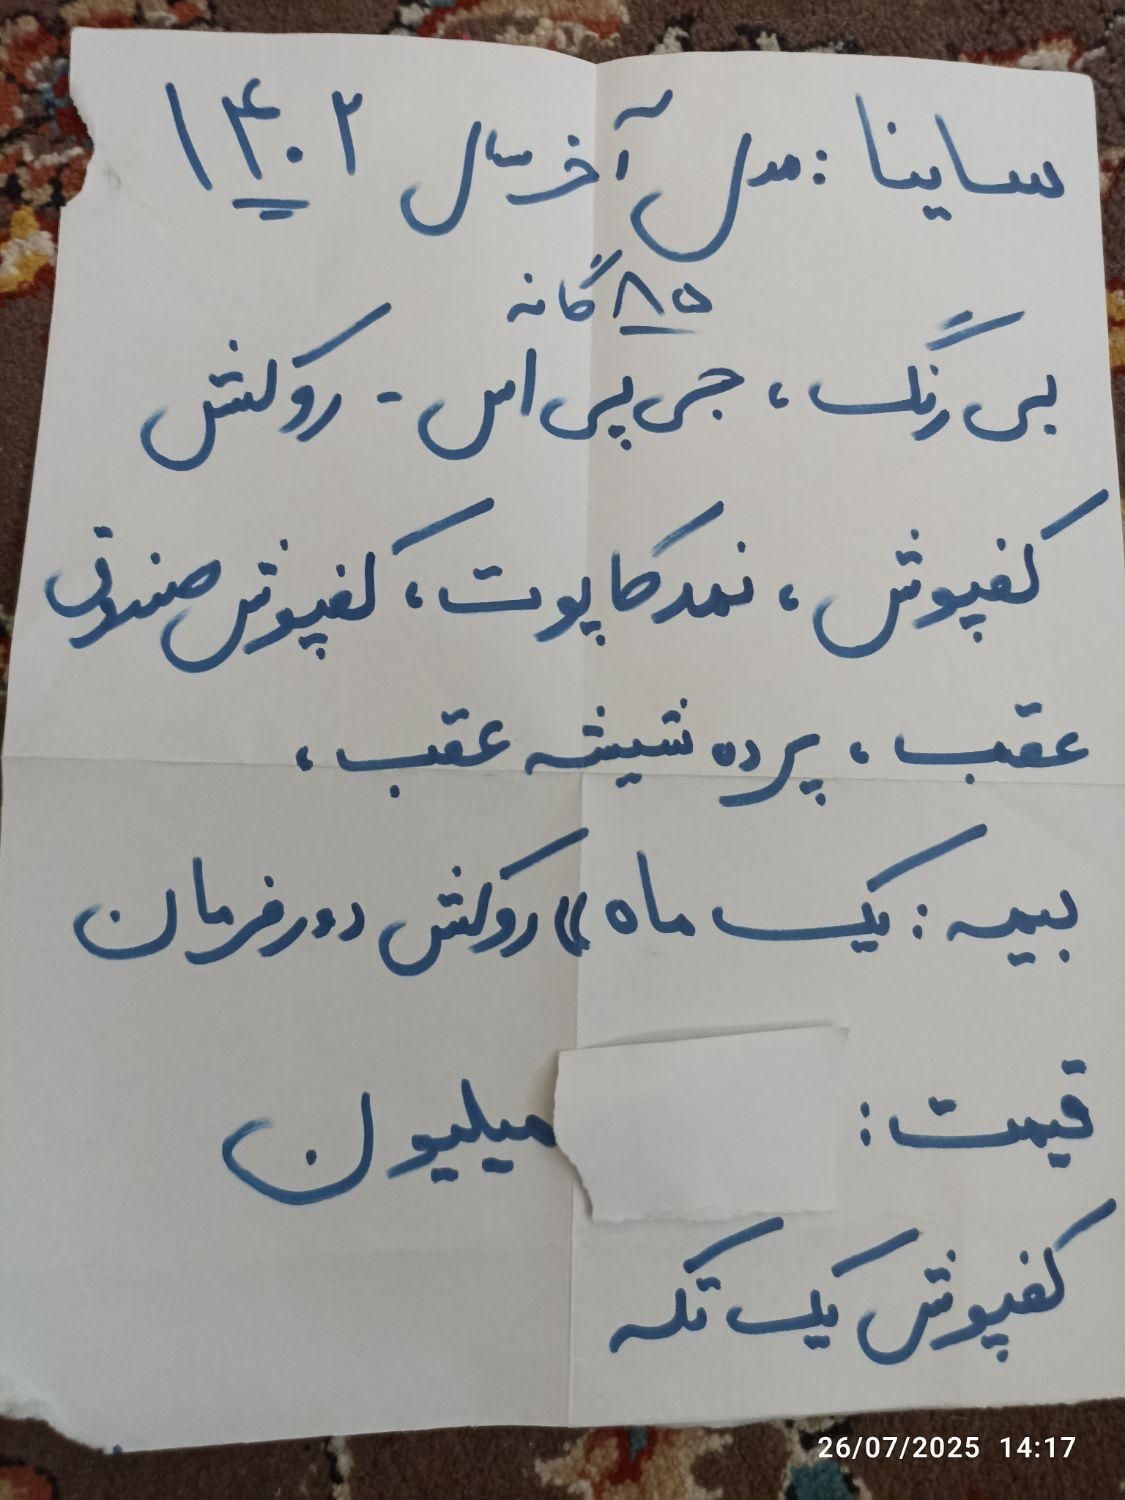 ساینا : مدل آخر سال ۱۴۰۲
۸۵ گانه
بی رنگ ، جی پی اس - روکش
کفپوش ، نمد کاپوت ، کفپوش صندوق
عقب ، پرده شیشه عقب ،
بیمه : یک ماه )) روکش دور فرمان
قیمت : میلیون
کفپوش یک تکه
26/07/2025 14:17